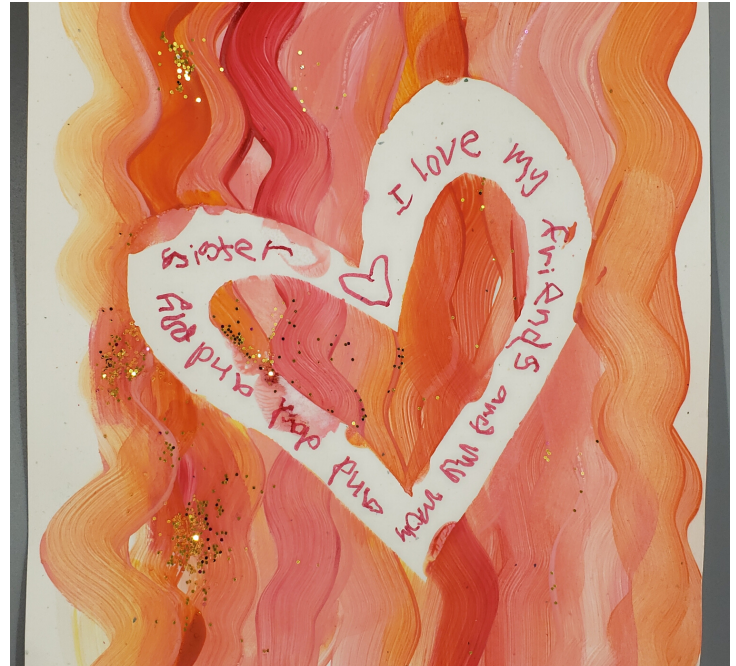 I love my friends and my mom and dad and my sister